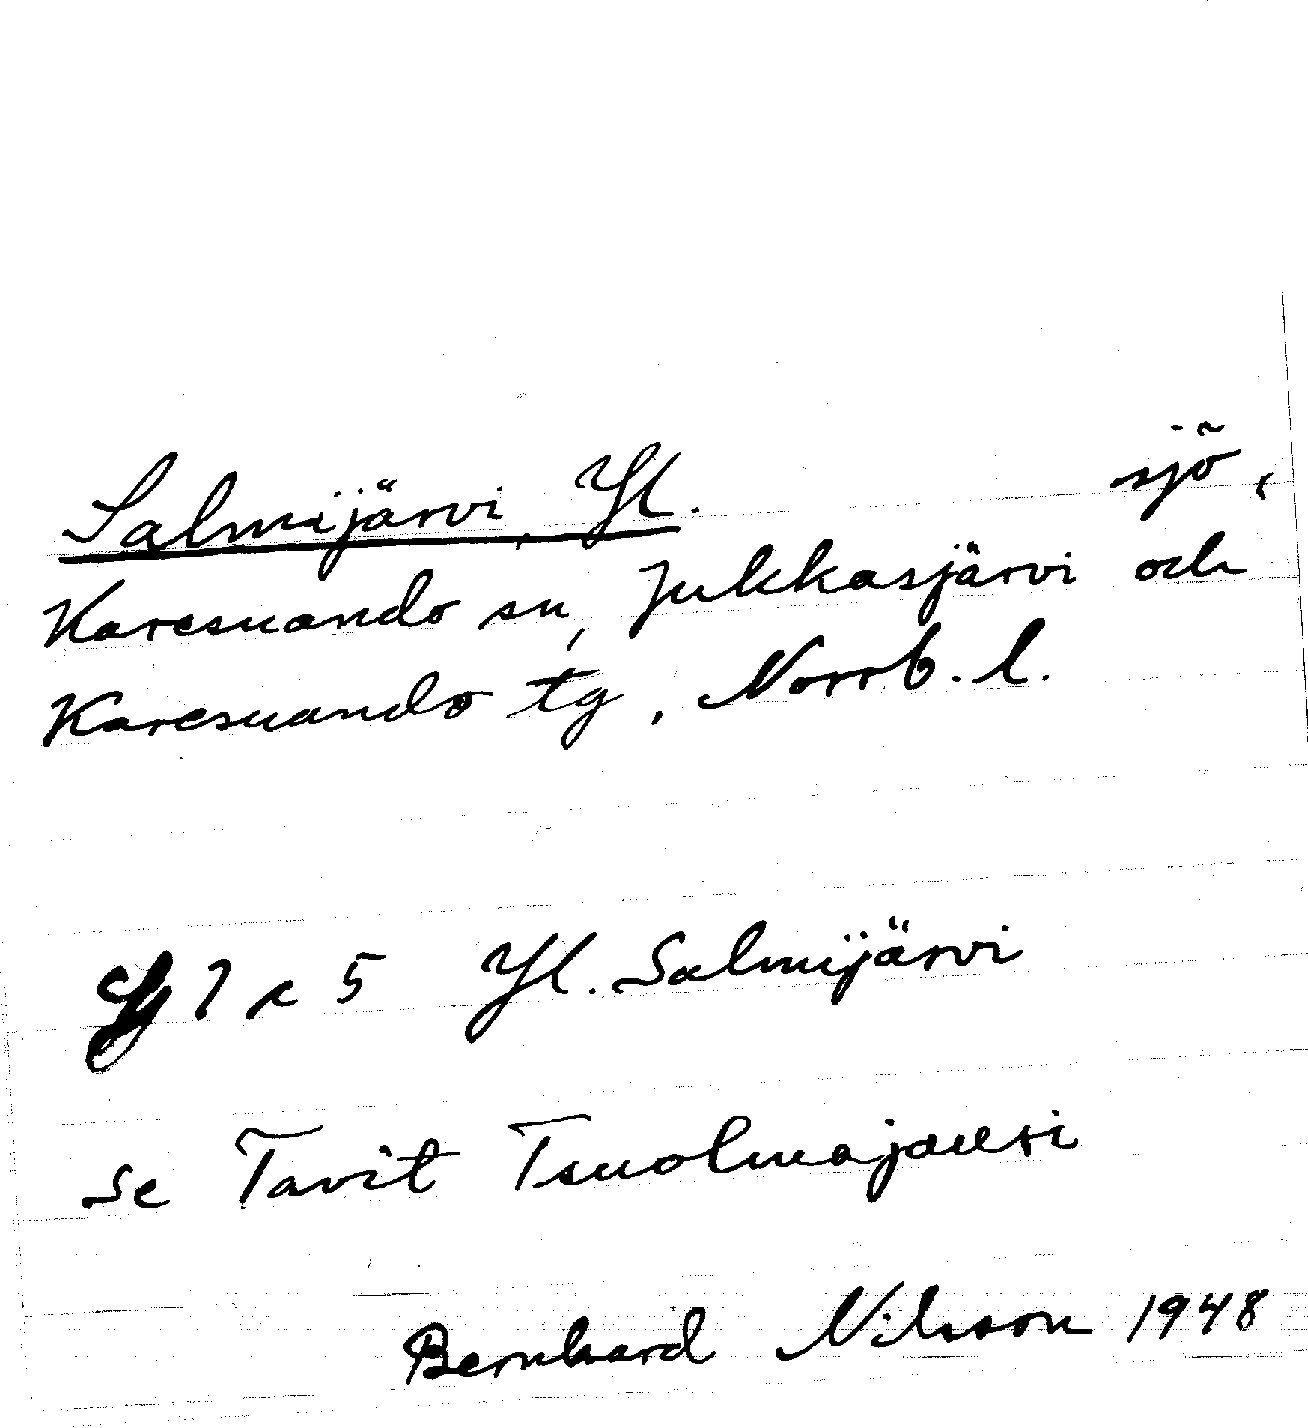 Salmijärvi, Yl. sjö,
Karesuando sn, Jukkasjärvi och
Karesuando tg, Norrb. l.
7 c 5 Yl. Salmijärvi
se Tavit Tsuolmajaursi
Bernhard Nilsson 1948